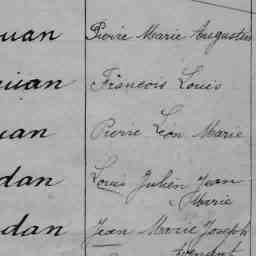 uan Pierre Marie Augustin
uan François Louis
uan Pierre Léon Marie
dan Louis Julien Jean
Marie
dan Jean Marie Joseph